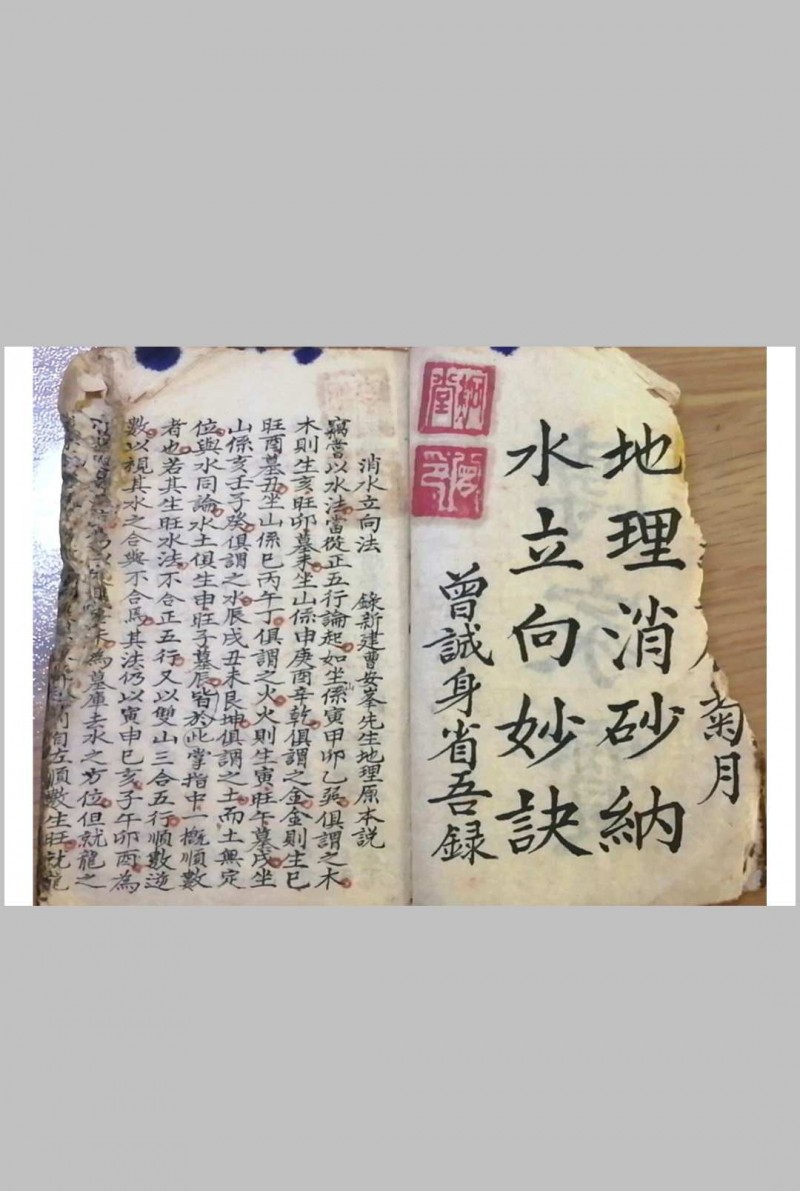 菊月
地理消砂納
水立向妙訣
曾誠身省吾錄
消水立向法　錄新建曹安峯先生地理原本説
竊嘗以水法當從正五行論起如坐係寅甲卯乙巽俱謂之木
木則生亥旺卯墓未坐山係申庚酉辛乾俱謂之金金則生巳
旺酉墓丑坐山係巳丙午丁俱謂之火火則生寅旺午墓戌坐
山係亥壬子癸俱謂之水辰戌丑未艮坤俱謂之土而土無定
位與水同論水土俱生申旺子墓辰皆於此掌指中一概順數
者也若其生旺水法不合正五行又以雙山三合五行順數逆
數以視其水之合與不合焉其法仍以寅申巳亥子午卯酉為
為墓庫去水之方位但就龍之
左順數生旺